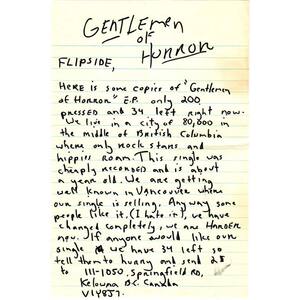 GENTLEMEN
OF
HORROR
FLIPSIDE,
HERE is some copies of "Gentlemen
of Horror" E.P. only 200
pressed and 34 left right now.
We live in a city of 80,000 in
the middle of British Columbia
where only rock stars and
hippies roam. This single was
cheaply recorded and is about
a year old. We are getting
well known in Vancouver where
our single is selling. Anyway some
people like it, (I hate it), we have
changed completely, we are HARDER
now. If anyone would like our
single we have 34 left so
tell them to hurry and send 2$
to 111-1050, Springfield RD,
Kelowna B.C. Canada
V1Y8J7.